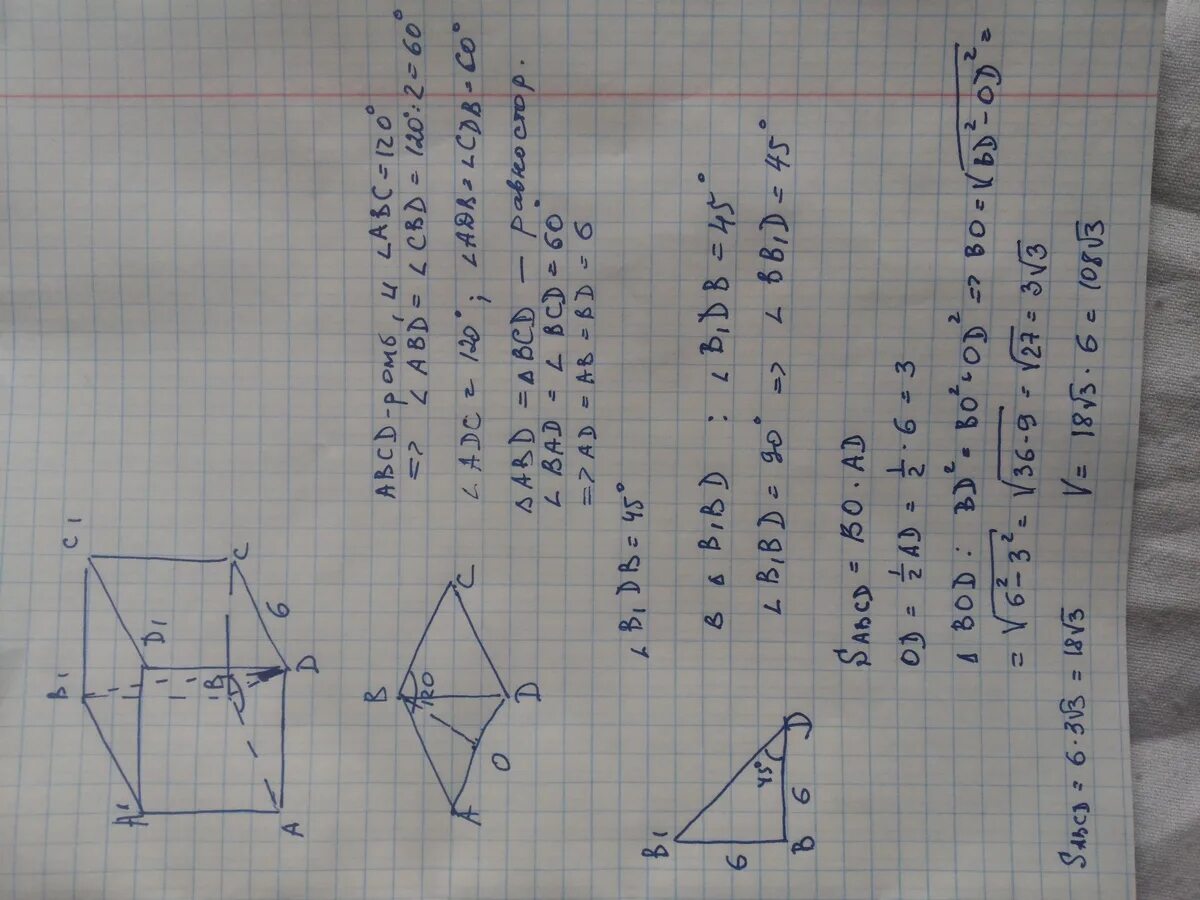 B₁ C₁
A₁ D₁
B C
A D 6
ABCD - ромб, и ∠ABC = 120°
=> ∠ABD = ∠CBD = 120° : 2 = 60°
∠ADC = 120° ; ∠ADB = ∠CDB = 60°
B
120
A C
O D
ΔABD = ΔBCD — равностор.
∠BAD = ∠BCD = 60°
=> AD = AB = BD = 6
∠B₁DB = 45°
B₁
6 45°
B 6 D
В Δ B₁BD : ∠B₁DB = 45°
∠B₁BD = 90° => ∠BB₁D = 45°
S ABCD = BO · AD
OD = ½ AD = ½ · 6 = 3
Δ BOD : BD² = BO² + OD² => BO = √BD² - OD² =
= √6² - 3² = √36 - 9 = √27 = 3√3
S ABCD = 6 · 3√3 = 18√3 V = 18√3 · 6 = 108√3